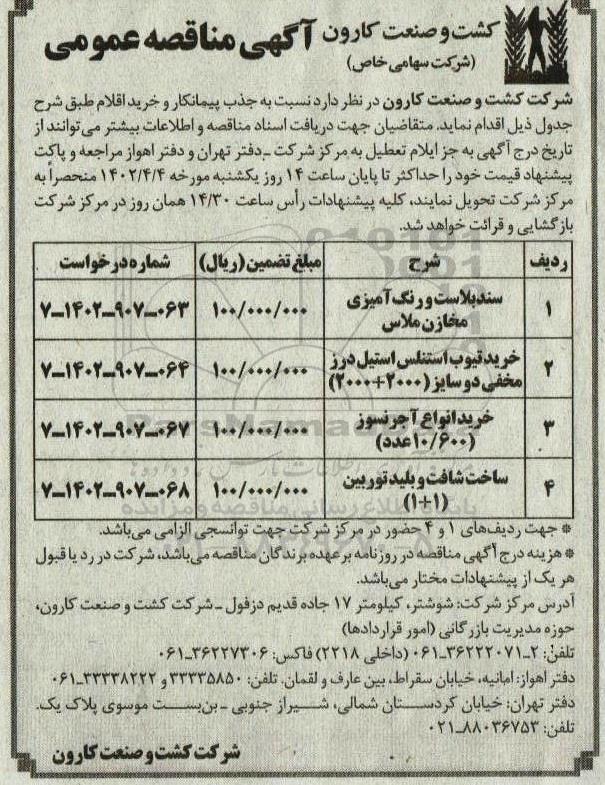 کشت و صنعت کارون
(شرکت سهامی خاص)
آگهی مناقصه عمومی
شرکت کشت و صنعت کارون در نظر دارد نسبت به جذب پیمانکار و خرید اقلام طبق شرح
جدول ذیل اقدام نماید. متقاضیان جهت دریافت اسناد مناقصه و اطلاعات بیشتر می‌توانند از
تاریخ درج آگهی به جز ایام تعطیل به مرکز شرکت ـ دفتر تهران و دفتر اهواز مراجعه و پاکت
پیشنهاد قیمت خود را حداکثر تا پایان ساعت ۱۴ روز یکشنبه مورخه ۱۴۰۲/۴/۴ منحصراً به
مرکز شرکت تحویل نمایند، کلیه پیشنهادات رأس ساعت ۱۴/۳۰ همان روز در مرکز شرکت
بازگشایی و قرائت خواهد شد.
ردیف شرح مبلغ تضمین (ریال) شماره درخواست
۱ سندبلاست و رنگ آمیزی مخازن ملاس ۱۰۰/۰۰۰/۰۰۰ ۷-۱۴۰۲-۹۰۷-۰۶۳
۲ خرید تیوب استنلس استیل درز مخفی دو سایز (۲۰۰۰+۲۰۰۰) ۱۰۰/۰۰۰/۰۰۰ ۷-۱۴۰۲-۹۰۷-۰۶۴
۳ خرید انواع آجر نسوز (۱۰/۶۰۰ عدد) ۱۰۰/۰۰۰/۰۰۰ ۷-۱۴۰۲-۹۰۷-۰۶۷
۴ ساخت شافت و بلید توربین (۱+۱) ۱۰۰/۰۰۰/۰۰۰ ۷-۱۴۰۲-۹۰۷-۰۶۸
* جهت ردیف‌های ۱ و ۴ حضور در مرکز شرکت جهت توانسجی الزامی می‌باشد.
* هزینه درج آگهی مناقصه در روزنامه بر عهده برندگان مناقصه می‌باشد، شرکت در رد یا قبول
هر یک از پیشنهادات مختار می‌باشد.
آدرس مرکز شرکت: شوشتر، کیلومتر ۱۷ جاده قدیم دزفول ـ شرکت کشت و صنعت کارون،
حوزه مدیریت بازرگانی (امور قراردادها)
تلفن: ۲-۰۶۱-۳۶۲۲۲۰۷۱ (داخلی ۲۲۱۸) فاکس: ۰۶۱-۳۶۲۲۷۳۰۶
دفتر اهواز: امانیه، خیابان سقراط، بین عارف و لقمان. تلفن: ۳۳۳۳۵۸۵۰ و ۰۶۱-۳۳۳۳۸۲۲۲
دفتر تهران: خیابان کردستان شمالی، شیراز جنوبی ـ بن‌بست موسوی پلاک یک.
تلفن: ۰۲۱-۸۸۰۳۶۷۵۳
شرکت کشت و صنعت کارون